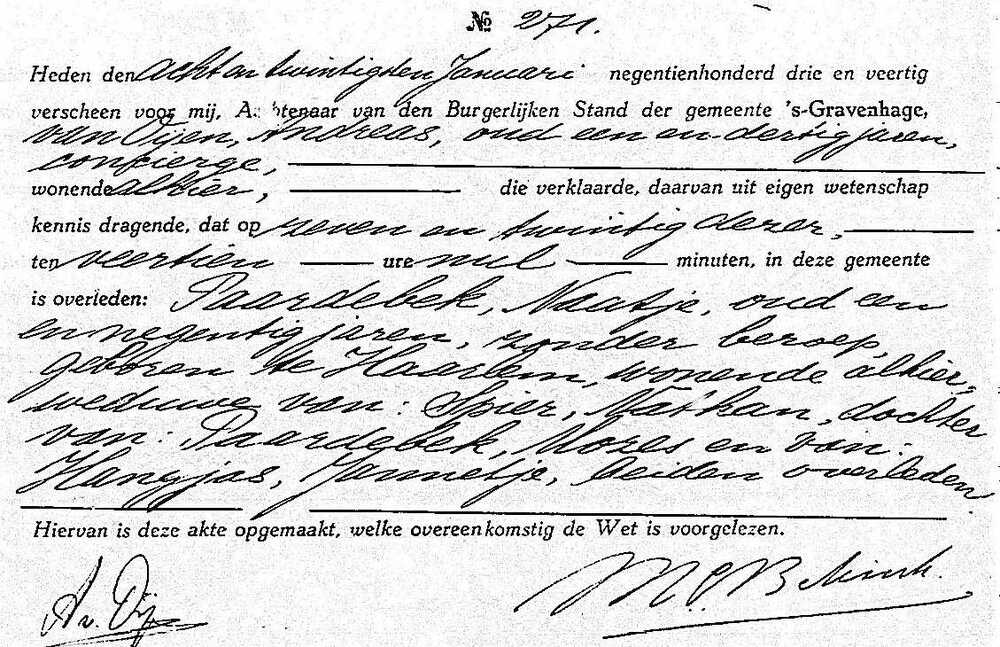 № 271.
Heden den acht en twintigsten Januari negentienhonderd drie en veertig
verscheen voor mij, Ambtenaar van den Burgerlijken Stand der gemeente 's-Gravenhage,
van Dijen, Andreas, oud een en dertig jaren,
concierge,
wonende alhier, die verklaarde, daarvan uit eigen wetenschap
kennis dragende, dat op zeven en twintig dezer,
ten veertien ure nul minuten, in deze gemeente
is overleden: Paardebek, Naatje, oud een
en negentig jaren, zonder beroep,
geboren te Haarlem, wonende alhier,
weduwe van: Spier, Nathan, dochter
van: Paardebek, Mozes en van:
Hangjas, Jannetje, beiden overleden
Hiervan is deze akte opgemaakt, welke overeenkomstig de Wet is voorgelezen.
A v. Dijen